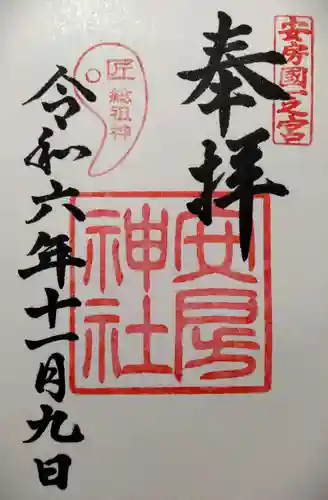 安房國一之宮
奉拝
安房
神社
匠
総祖神
令和六年十一月九日